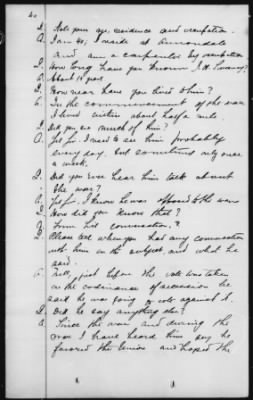 Q. State your age, residence and occupation.
A. I am 40; I reside at Annandale
and am a carpenter by occupation
Q. How long have you known J. H.
A. About 15 years.
Q. How near have you lived to him?
A. In the commencement of the war
I lived within about half a mile.
Q. Did you see much of him?
A. Yes Sir. I used to see him probably
every day, but sometimes only once
a week.
Q. Did you ever hear him talk about
the war?
A. Yes Sir. I know he was opposed to the war
Q. How did you know that?
A. From his conversation.
Q. Please tell when you had any conversation
with him on the subject, and what he
said.
A. Well, just before the vote was taken
on the ordinance of secession he
said he was going to vote against it.
Q. Did he say anything else?
A. Since the war and during the
war I have heard him say he
favored the Union and hoped the